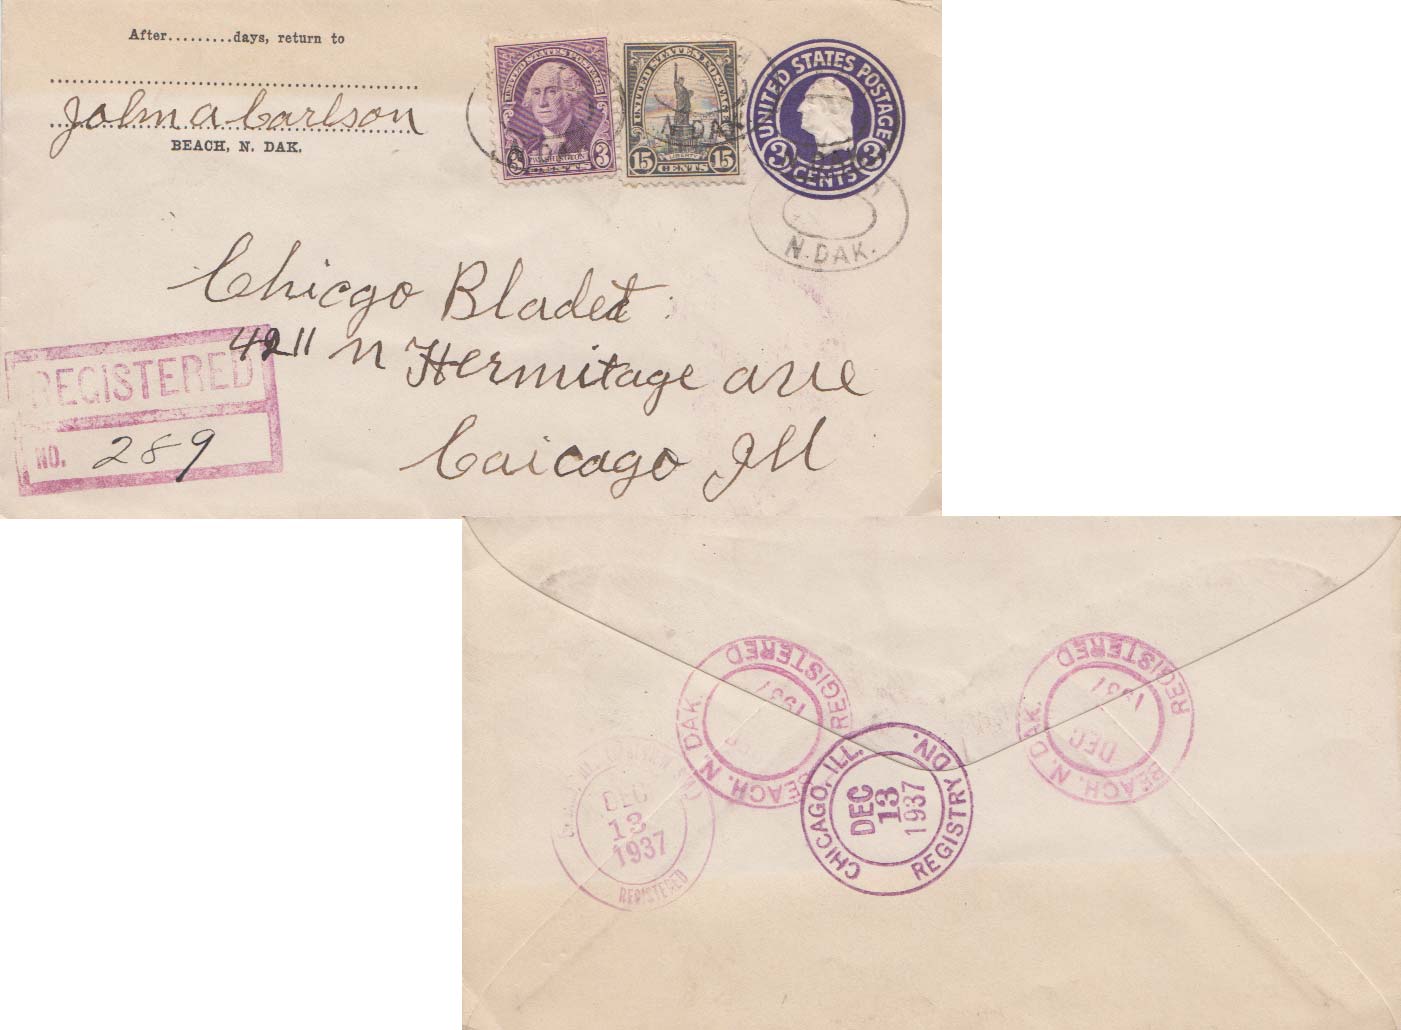 After.........days, return to
John A Carlson
BEACH, N. DAK.
UNITED STATES POSTAGE
3 WASHINGTON 3
CENTS
UNITED STATES POSTAGE
LIBERTY
15 CENTS 15
UNITED STATES POSTAGE
3 CENTS 3
N. DAK.
N. DAK.
N. DAK.
N. DAK.
Chicgo Bladet
4211 N Hermitage ave
Caicago Ill
REGISTERED
NO. 289
BEACH, N. DAK. REGISTERED
DEC 1937
BEACH, N. DAK. REGISTERED
DEC 1937
CHICAGO, ILL. REGISTRY DIV.
DEC
13
1937
DEC
13
1937
REGISTERED